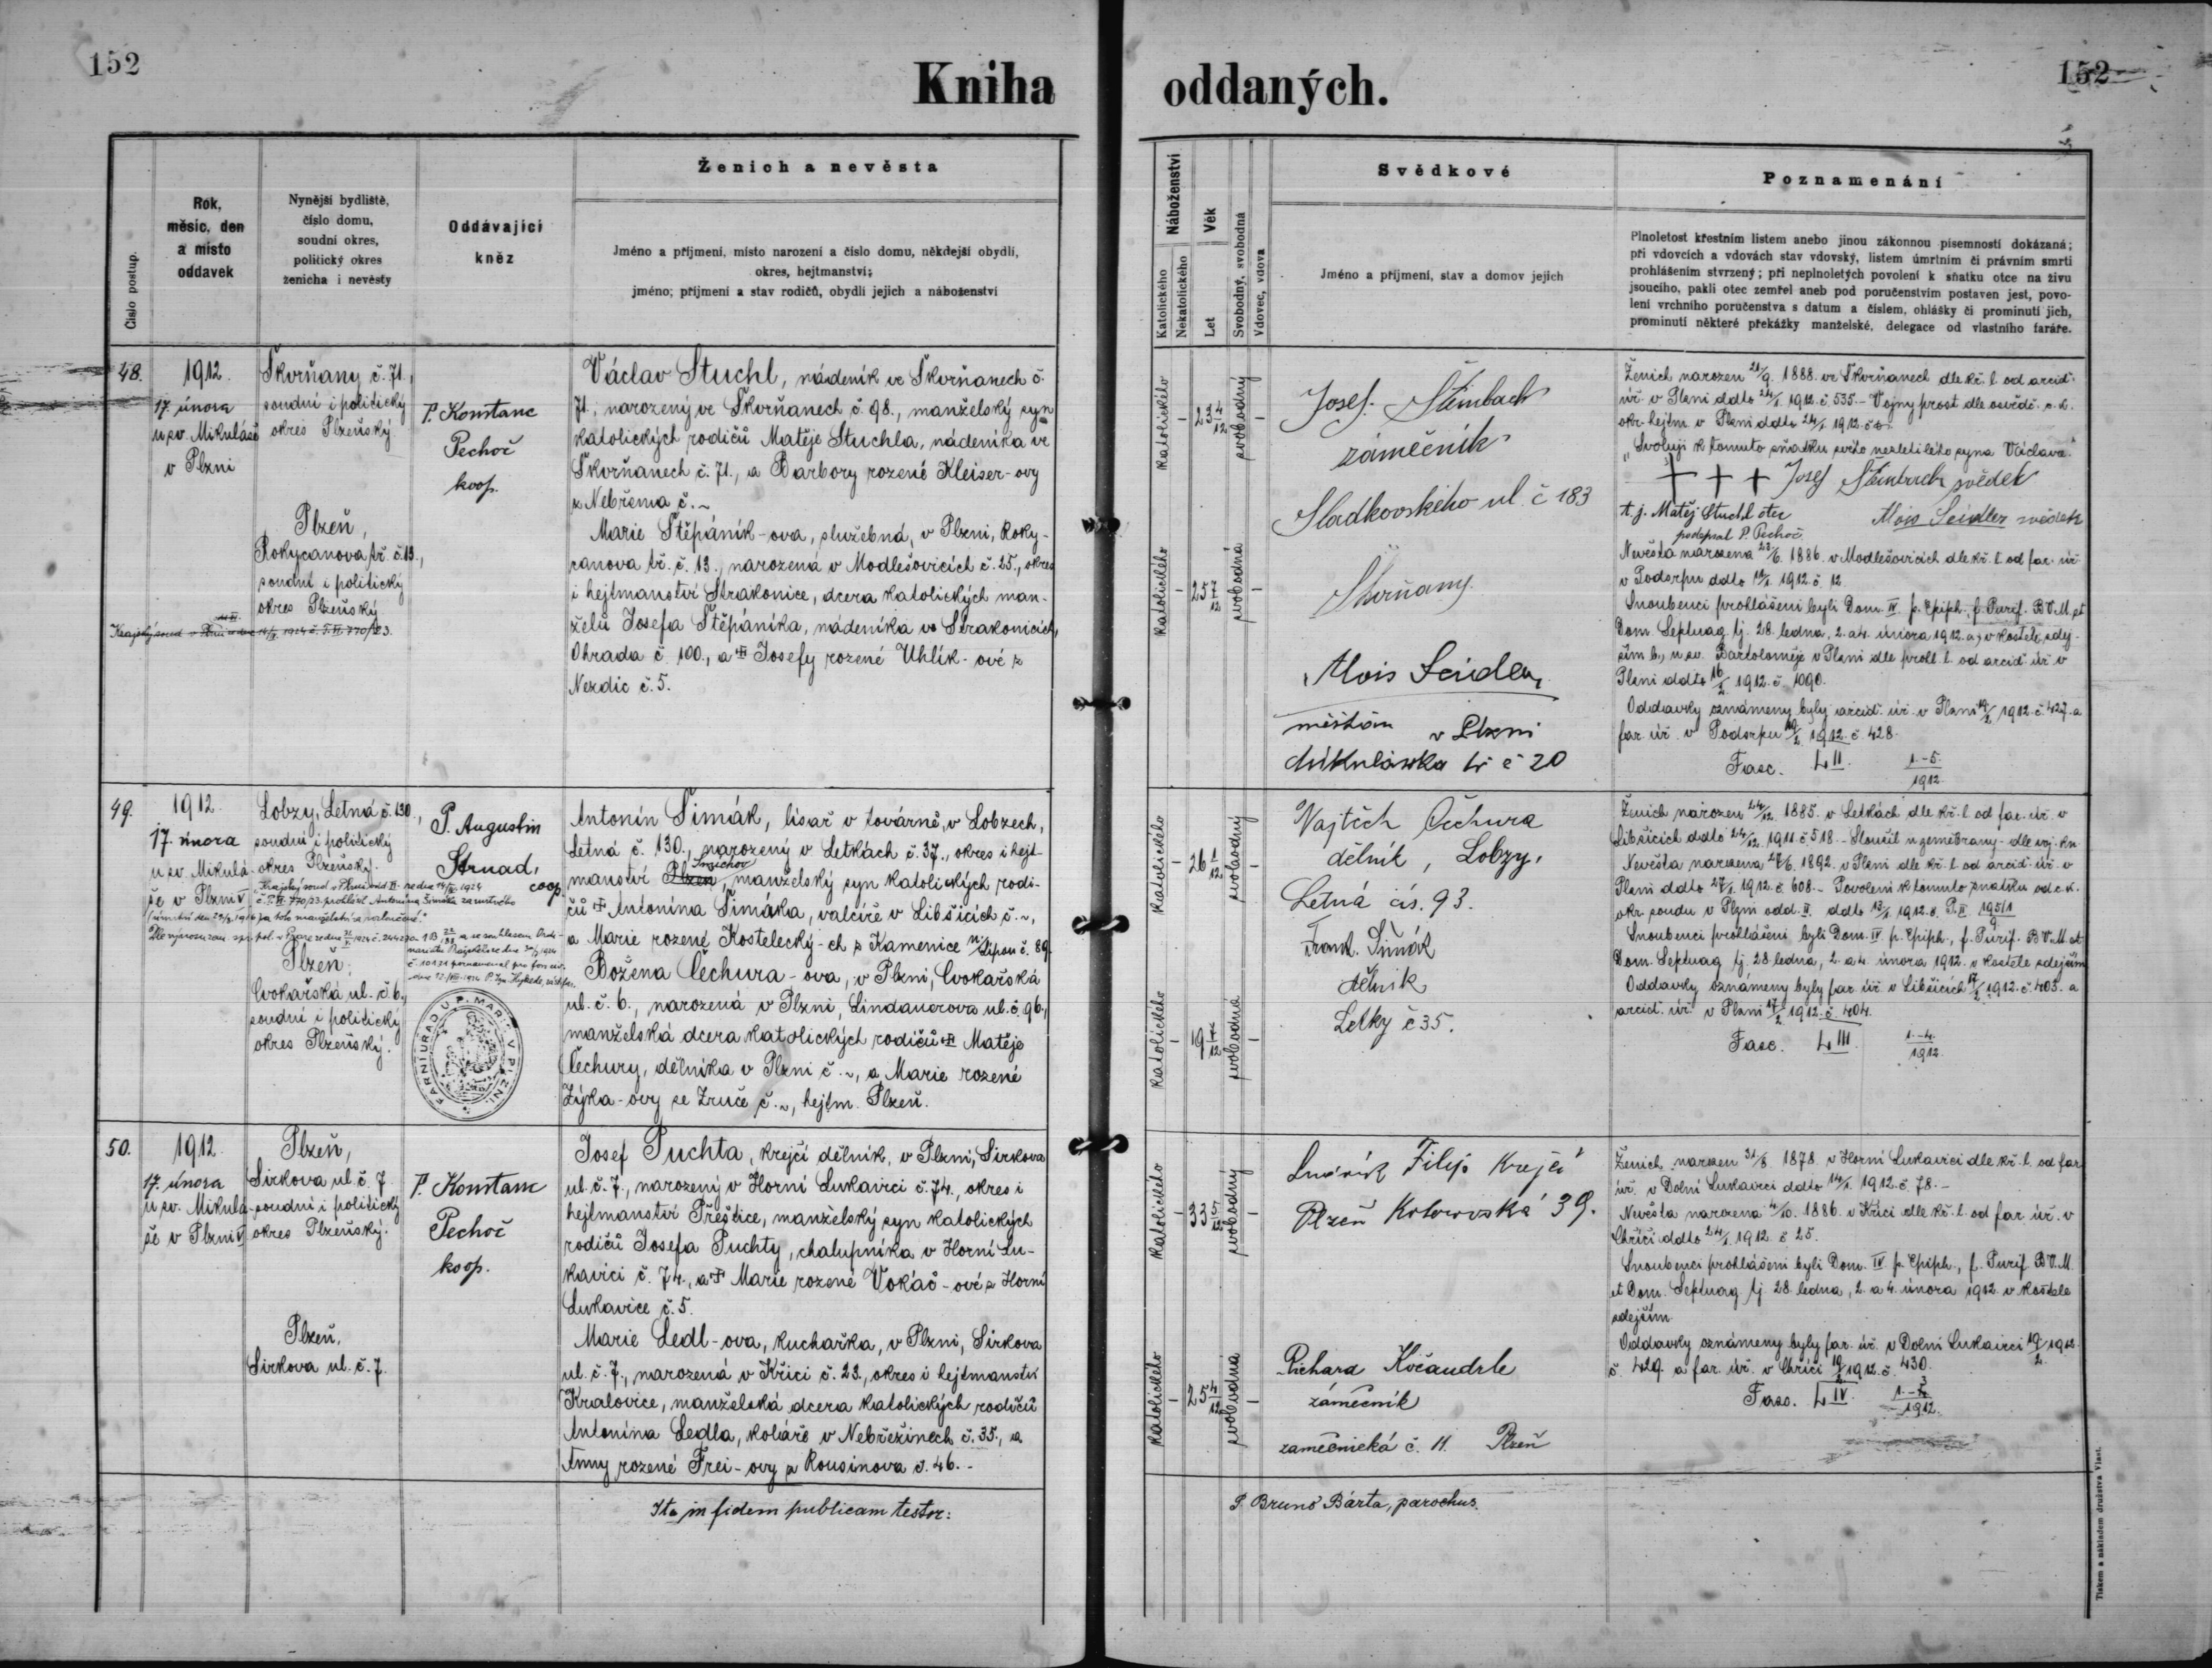 152
Kniha oddaných.
152
Číslo postup.
Rok,
měsíc, den
a místo
oddavek
Nynější bydliště,
číslo domu,
soudní okres,
politický okres
ženicha i nevěsty
Oddávající
kněz
Ženich a nevěsta
Jméno a příjmení, místo narození a číslo domu, někdejší obydlí,
okres, hejtmanství;
jméno, příjmení a stav rodičů, obydlí jejich a náboženství
Náboženství
Katolického
Nekatolického
Věk
Let
Svobodný, svobodná
Vdovec, vdova
Svědkové
Jméno a příjmení, stav a domov jejich
Poznamenání
Plnoletost křestním listem anebo jinou zákonnou písemností dokázaná;
při vdovcích a vdovách stav vdovský, listem úmrtním či právním smrti
prohlášením stvrzený; při neplnoletých povolení k sňatku otce na živu
jsoucího, pakli otec zemřel aneb pod poručenstvím postaven jest, povo-
lení vrchního poručenstva s datum a číslem, ohlášky či prominutí jich,
prominutí některé překážky manželské, delegace od vlastního faráře.
48.
1912.
17. února
u sv. Mikuláše
v Plzni
Škvrňany č. 71.,
soudní i politický
okres Plzeňský.
Plzeň,
Rokycanova tř. č. 13.,
soudní i politický
okres Plzeňský
P. Konstanc
Pechoč
koop.
Václav Stuchl, nádeník ve Škvrňanech č.
71., narozený ve Škvrňanech č. 98., manželský syn
katolických rodičů Matěje Stuchla, nádeníka ve
Škvrňanech č. 71., a Barbory rozené Kleiser-ovy
z Nebřema č. ~
Marie Štěpáník-ova, služebná, v Plzni, Roky-
canova tř. č. 13., narozená v Modlešovicích č. 25., okres
i hejtmanství Strakonice, dcera katolických man-
želů Josefa Štěpáníka, nádeníka ve Strakonicích,
Ohrada č. 100., a Josefy rozené Uhlík-ové z
Nezdic č. 5.
katolického
-
23 4/12
svobodný
-
katolického
-
25 7/12
svobodná
-
Josef Steinbach
zámečník
Sladkovského ul. č 183
Škvrňany
Alois Seidler,
měšťan v Plzni
Mikulášska tř č 20
Ženich narozen 21/9. 1888. ve Škvrňanech dle kř. l. od arcid.
úř. v Plzni ddto 24/1. 1912. č. 535. - Vojny prost dle osvědč. c. k.
okr. hejtm. v Plzni ddto 24/1. 1912. č.
"Svoluji k tomuto sňatku svého nezletilého syna Václava."
+ + + Josef Steinbach svědek
t. j. Matěj Stuchl otec Alois Seidler svědek
podepsal P. Pechoč.
Nevěsta narozena 23/6. 1886. v Modlešovicích dle kř. l. od far. úř.
v Podsrpu ddto 1912. č 12.
Snoubenci prohlášeni byli Dom. IV p. Epiph., f. Purif. B.V.M. et
Dom. Septuag. tj. 28. ledna, 2. a 4. února 1912. a, v kostele zdej-
ším b., u sv. Bartoloměje v Plzni dle prohl. l. od arcid. úř. v
Plzni ddto 16/2. 1912. č. 1090.
Oddavky oznámeny byly arcid. úř. v Plzni 19/2. 1912. č. 427. a
far. úř. v Podsrpu 19/2. 1912. č. 428.
Fasc. L II. 1.-5./1912.
49.
1912.
17. února
u sv. Mikulá-
še v Plzni
Lobzy, Letná č. 130.,
soudní i politický
okres Plzeňský.
Plzeň,
Cvokařská ul. č. 6.,
soudní i politický
okres Plzeňský.
P. Augustin
Strnad,
coop.
FARNÍ ÚŘAD U P. MARIE V PLZNI
Antonín Šimák, lisař v továrně, v Lobzech,
Letná č. 130., narozený v Letkách č. 37., okres i hejt-
manství Plzeň Smíchov, manželský syn katolických rodi-
čů Antonína Šimáka, valcíře v Libšicích č. ~,
a Marie rozené Kostelecký-ch z Kamenice n/Lipou č. 89.
Božena Čechura-ova, v Plzni, Cvokařská
ul. č. 6., narozená v Plzni, Lindauerova ul. č. 96.,
manželská dcera katolických rodičů Matěje
Čechury, dělníka v Plzni č. ~, a Marie rozené
Zýka-ovy ze Zruče č. ~, hejtm. Plzeň.
katolického
-
26 1/12
svobodný
-
katolického
-
19 7/12
svobodná
-
Vojtěch Čechura
dělník, Lobzy,
Letná čís. 93.
Frant. Šimák
dělník
Letky č 35.
Ženich narozen 24/12. 1885. v Letkách dle kř. l. od far. úř. v
Libšicích ddto 24/12. 1911. č. 518. - Sloužil u zeměbrany dle voj. kn.
Nevěsta narozena 27/6. 1892. v Plzni dle kř. l. od arcid. úř. v
Plzni ddto 27/1. 1912. č. 608. - Povolení k tomuto sňatku od c. k.
okr. soudu v Plzni odd. II. ddto 1912. č. P. II 195/1
Snoubenci prohlášeni byli Dom. IV p. Epiph., f. Purif. B.V.M. et
Dom. Septuag. tj. 28. ledna, 2. a 4. února 1912. v kostele zdejším
Oddavky oznámeny byly far. úř. v Libšicích 17/2. 1912. č. 403. a
arcid. úř. v Plzni 17/2. 1912. č. 404.
Fasc. L III. 1.-4./1912.
50.
1912.
17. února
u sv. Mikulá-
še v Plzni
Plzeň,
Sirkova ul. č. 7.
soudní i politický
okres Plzeňský.
Plzeň,
Sirkova ul. č. 7.
P. Konstanc
Pechoč
koop.
Josef Puchta, krejčí dělník, v Plzni, Sirkova
ul. č. 7., narozený v Horní Lukavici č. 74., okres i
hejtmanství Přeštice, manželský syn katolických
rodičů Josefa Puchty, chalupníka v Horní Lu-
kavici č. 74., a Marie rozené Vokáč-ové z Horní
Lukavice č. 5.
Marie Ledl-ova, kuchařka, v Plzni, Sirkova
ul. č. 7., narozená v Křici č. 23., okres i hejtmanství
Kralovice, manželská dcera katolických rodičů
Antonína Ledla, koláře v Nebřežinech č. 35., a
Anny rozené Frei-ovy z Rousinova č. 46. -
katolického
-
33 5/12
svobodný
-
katolického
-
25 4/12
svobodna
-
Ludvík Filip krejčí
Plzeň Kolovrovská 39.
Richard Kočandrle
zámečník
zamečnická č. 11. Plzeň
Ženich narozen 31/8. 1878. v Horní Lukavici dle kř. l. od far.
úř. v Dolní Lukavici ddto 14/1. 1912. č. 78. -
Nevěsta narozena 4/10. 1886. v Křici dle kř. l. od far. úř. v
Chříči ddto 24/1. 1912. č 25.
Snoubenci prohlášeni byli Dom. IV p. Epiph., f. Purif. B.V.M.
et Dom. Septuag. tj. 28. ledna, 2. a 4. února 1912. v kostele
zdejším
Oddavky oznámeny byly far. úř. v Dolní Lukavici 19/2 1912.
č. 429. a far. úř. v Chříči 19/2 1912. č. 430.
Fasc. L IV. 1.-3/1912.
Ita in fidem publicam testor:
P. Bruno Bárta, parochus.
Tiskem a nákladem družstva Vlast.